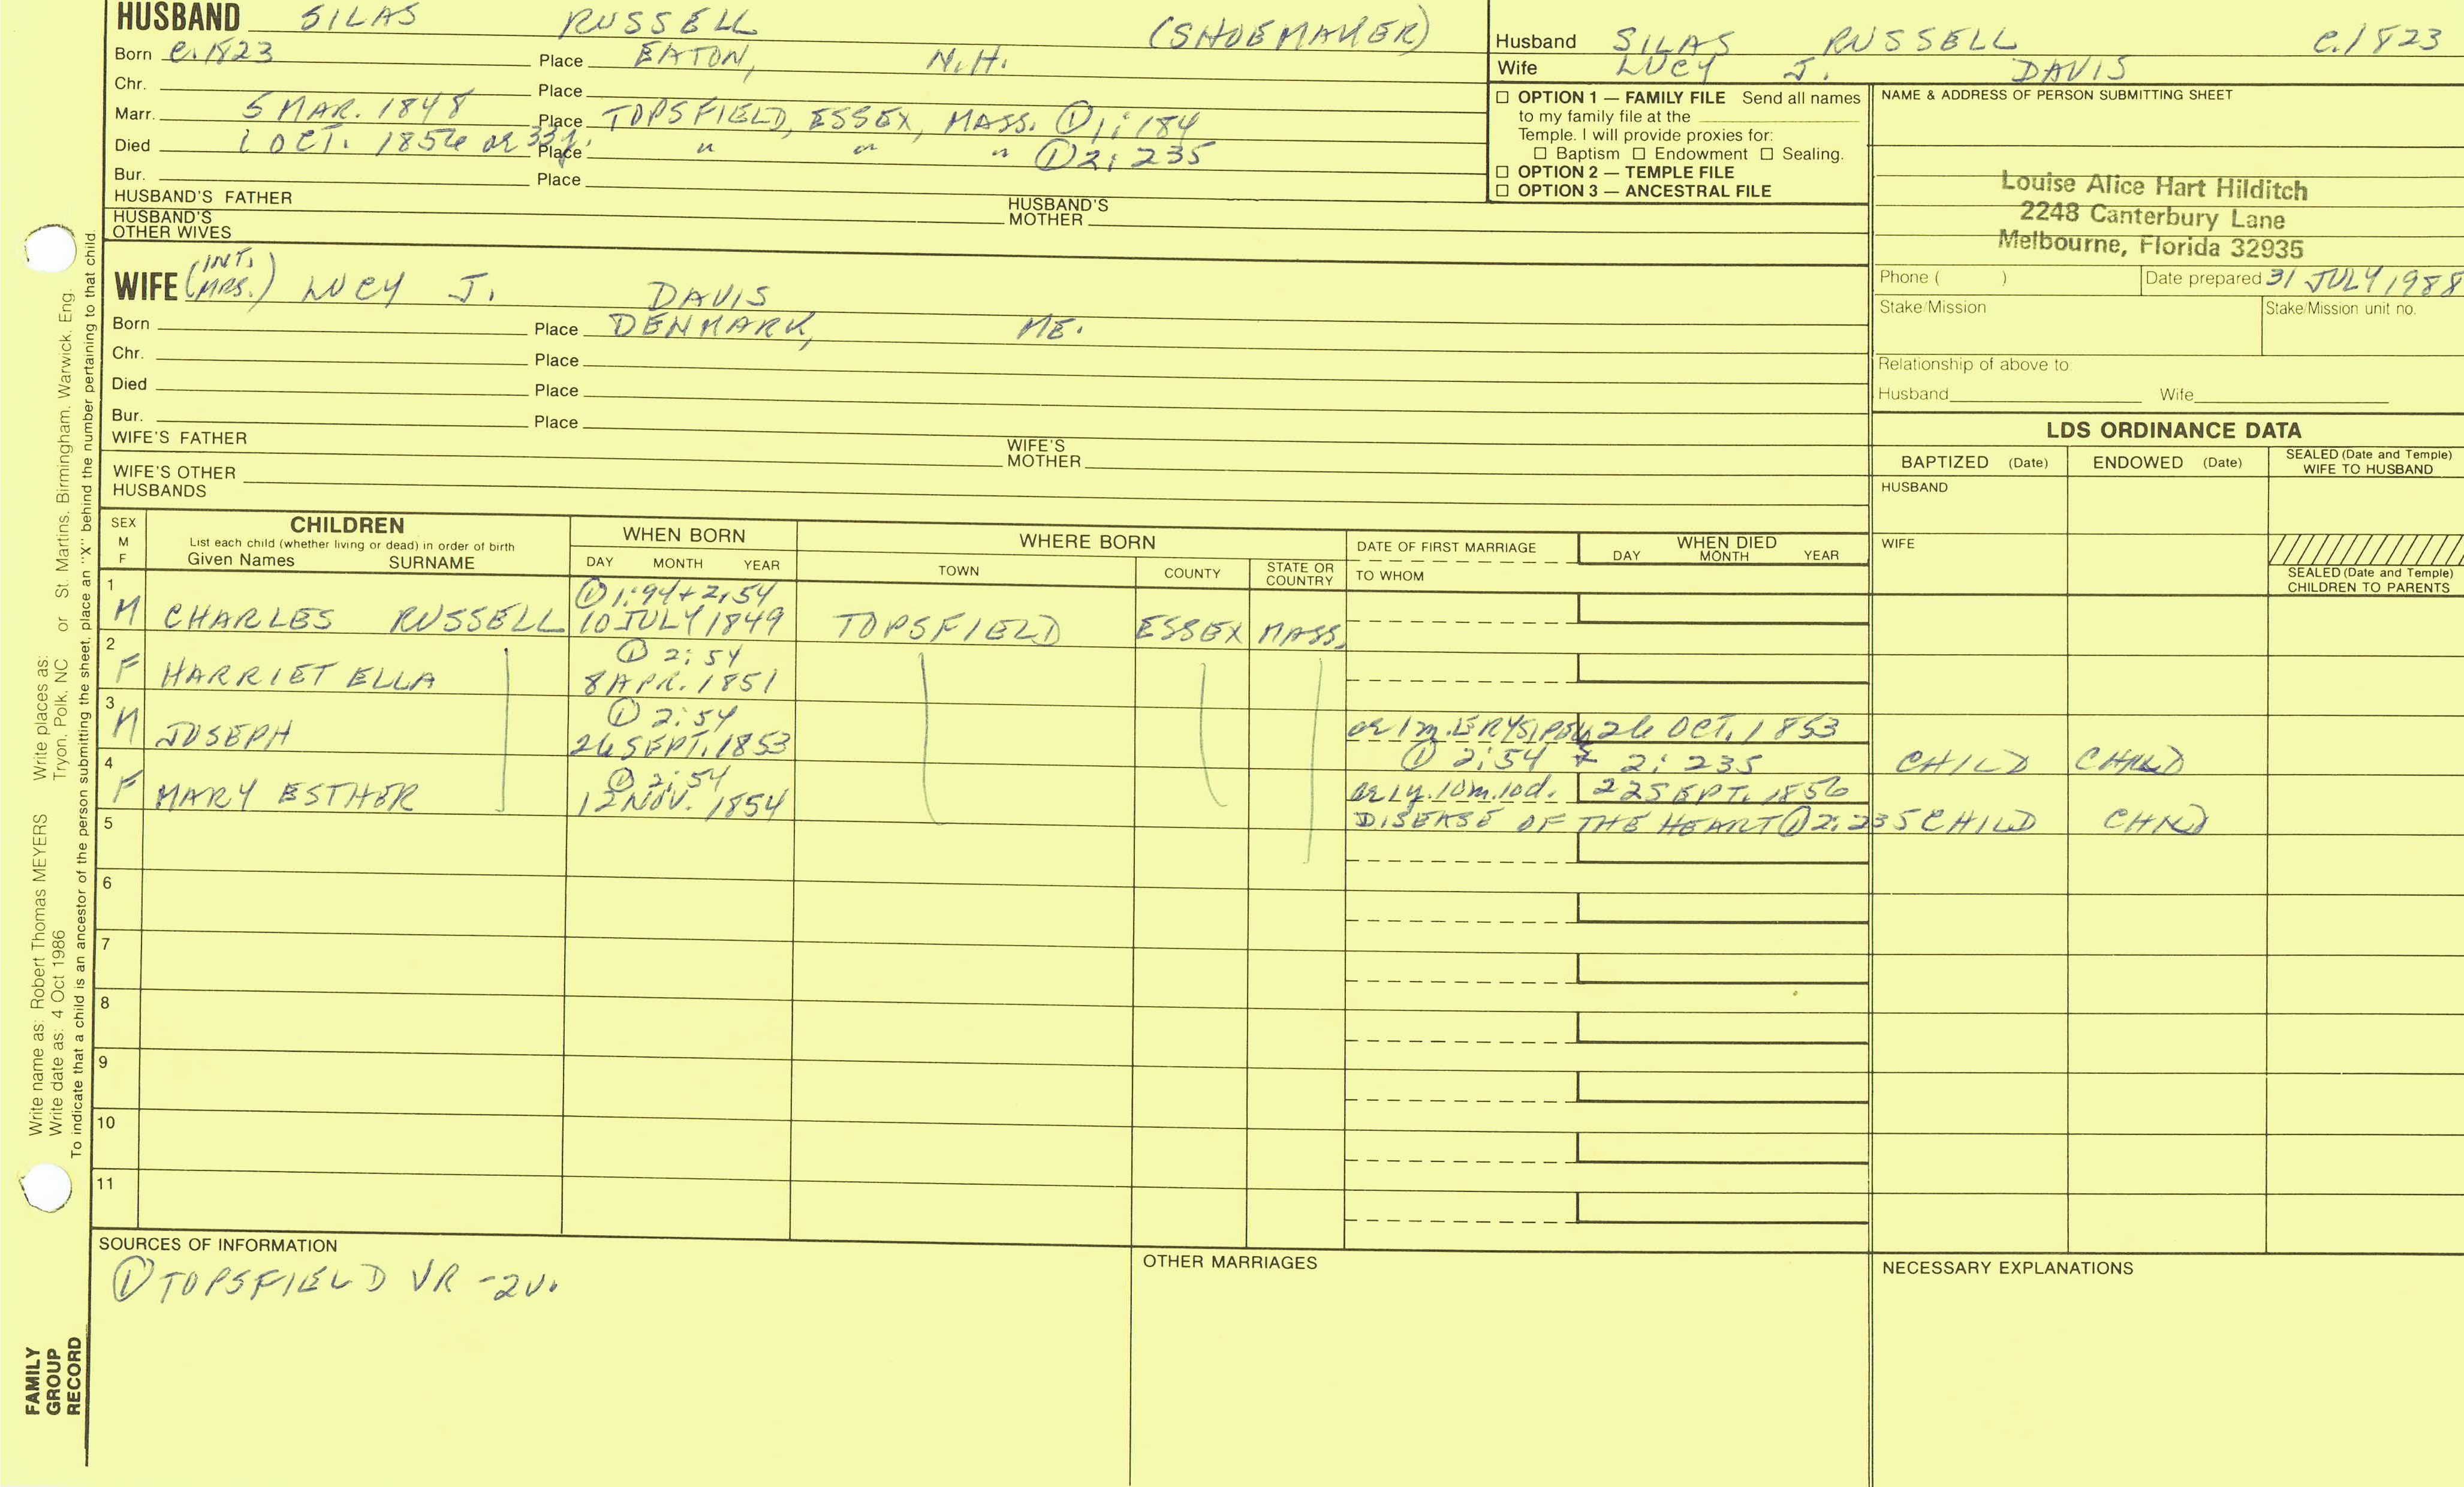 HUSBAND SILAS RUSSELL (SHOEMAKER)
Born c.1823 Place EATON, N.H.
Chr. Place
Marr. 5 MAR. 1848 Place TOPSFIELD, ESSEX, MASS. ① 1:184
Died 1 OCT. 1856 ae 33y. Place " " " ① 2:235
Bur. Place
HUSBAND'S FATHER HUSBAND'S MOTHER
HUSBAND'S OTHER WIVES
Husband SILAS RUSSELL c.1823
Wife LUCY J. DAVIS
☐ OPTION 1 — FAMILY FILE Send all names
to my family file at the
Temple. I will provide proxies for:
☐ Baptism ☐ Endowment ☐ Sealing.
☐ OPTION 2 — TEMPLE FILE
☐ OPTION 3 — ANCESTRAL FILE
NAME & ADDRESS OF PERSON SUBMITTING SHEET
Louise Alice Hart Hilditch
2248 Canterbury Lane
Melbourne, Florida 32935
Phone ( ) Date prepared 31 JULY 1988
Stake/Mission Stake/Mission unit no.
Relationship of above to
Husband Wife
WIFE (INT. MRS.) LUCY J. DAVIS
Born Place DENMARK, ME.
Chr. Place
Died Place
Bur. Place
WIFE'S FATHER WIFE'S MOTHER
WIFE'S OTHER HUSBANDS
LDS ORDINANCE DATA
BAPTIZED (Date) ENDOWED (Date) SEALED (Date and Temple) WIFE TO HUSBAND
HUSBAND
WIFE
SEALED (Date and Temple) CHILDREN TO PARENTS
SEX M F
CHILDREN
List each child (whether living or dead) in order of birth
Given Names SURNAME
WHEN BORN
DAY MONTH YEAR
WHERE BORN
TOWN COUNTY STATE OR COUNTRY
DATE OF FIRST MARRIAGE
TO WHOM
WHEN DIED
DAY MONTH YEAR
1 ① 1:94 + 2:54
M CHARLES RUSSELL 10 JULY 1849 TOPSFIELD ESSEX MASS.
2 ① 2:54
F HARRIET ELLA 8 APR. 1851
3 ① 2:54 ae 1m. 26 OCT. 1853
M JOSEPH 26 SEPT. 1853 ① 2:54 & 2:235 CHILD CHILD
4 ① 2:54 ae 1y. 10m. 10d. 22 SEPT. 1856
F MARY ESTHER 12 NOV. 1854
5 DISEASE OF THE HEART ① 2:235 CHILD CHILD
6
7
8
9
10
11
SOURCES OF INFORMATION
① TOPSFIELD VR - 2V.
OTHER MARRIAGES
NECESSARY EXPLANATIONS
Write name as: Robert Thomas MEYERS Write places as: Tryon, Polk, NC or St. Martins, Birmingham, Warwick, Eng.
Write date as: 4 Oct 1986
To indicate that a child is an ancestor of the person submitting the sheet, place an "X" behind the number pertaining to that child.
FAMILY
GROUP
RECORD